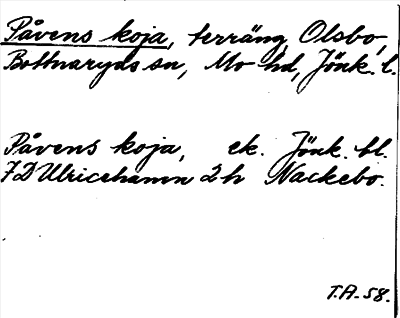 Påvens koja, terräng, Olsbo,
Bottnaryds sn, Mo hd, Jönk. l.
Påvens koja, ek. Jönk. bl.
7D Ulricehamn 2h Nackebo.
T.A. 58.